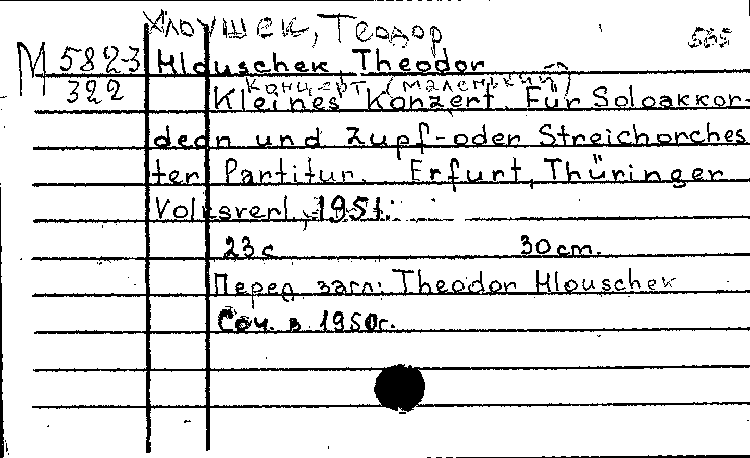 Хлоушек, Теодор
535
М 5823 Hlouschek Theodor
322
Концерт (маленький)
Kleines Konzert. Für Soloakkor-
deon und Zupf- oder Streichorches
ter. Partitur. Erfurt, Thüringer
Volksverl., 1951.
23 с 30 cm.
Перед загл: Theodor Hlouschek
Соч. в 1950г.